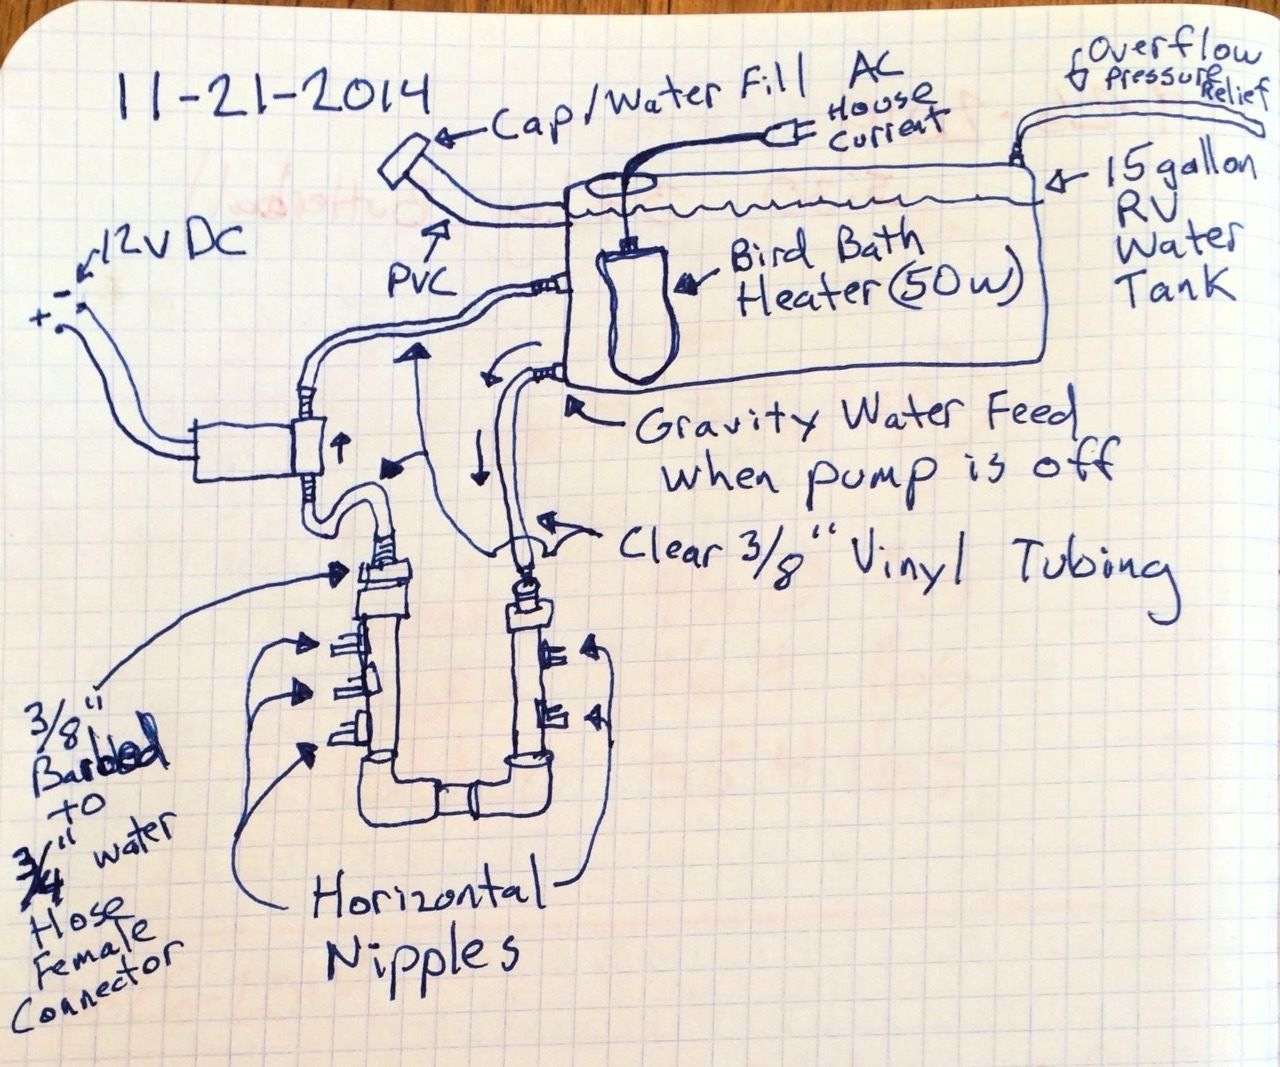 11-21-2014
Cap/Water Fill
AC
House
Current
Overflow
Pressure
Relief
15 gallon
RV
Water
Tank
12v DC
- +
PVC
Bird Bath
Heater (50w)
Gravity Water Feed
when pump is off
Clear 3/8" Vinyl Tubing
3/8"
Barbed
to
3/4" water
Hose
Female
Connector
Horizontal
Nipples